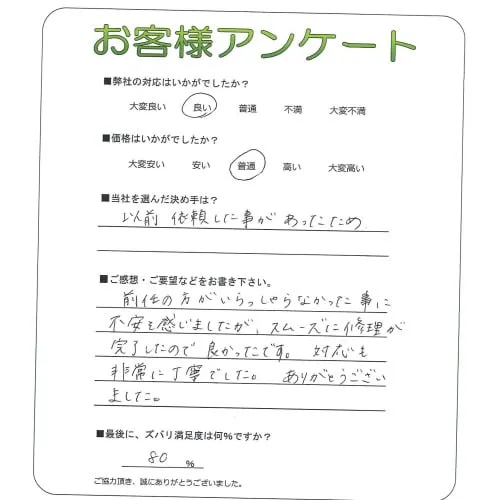 お客様アンケート
■弊社の対応はいかがでしたか？
大変良い 良い 普通 不満 大変不満
■価格はいかがでしたか？
大変安い 安い 普通 高い 大変高い
■当社を選んだ決め手は？
以前 依頼した事が あったため
■ご感想・ご要望などをお書き下さい。
前任の方がいらっしゃらなかった事に
不安を感じましたが、スムーズに修理が
完了したので良かったです。 対応も
非常に丁寧でした。 ありがとうござい
ました。
■最後に、ズバリ満足度は何％ですか？
80 ％
ご協力頂き、誠にありがとうございました。